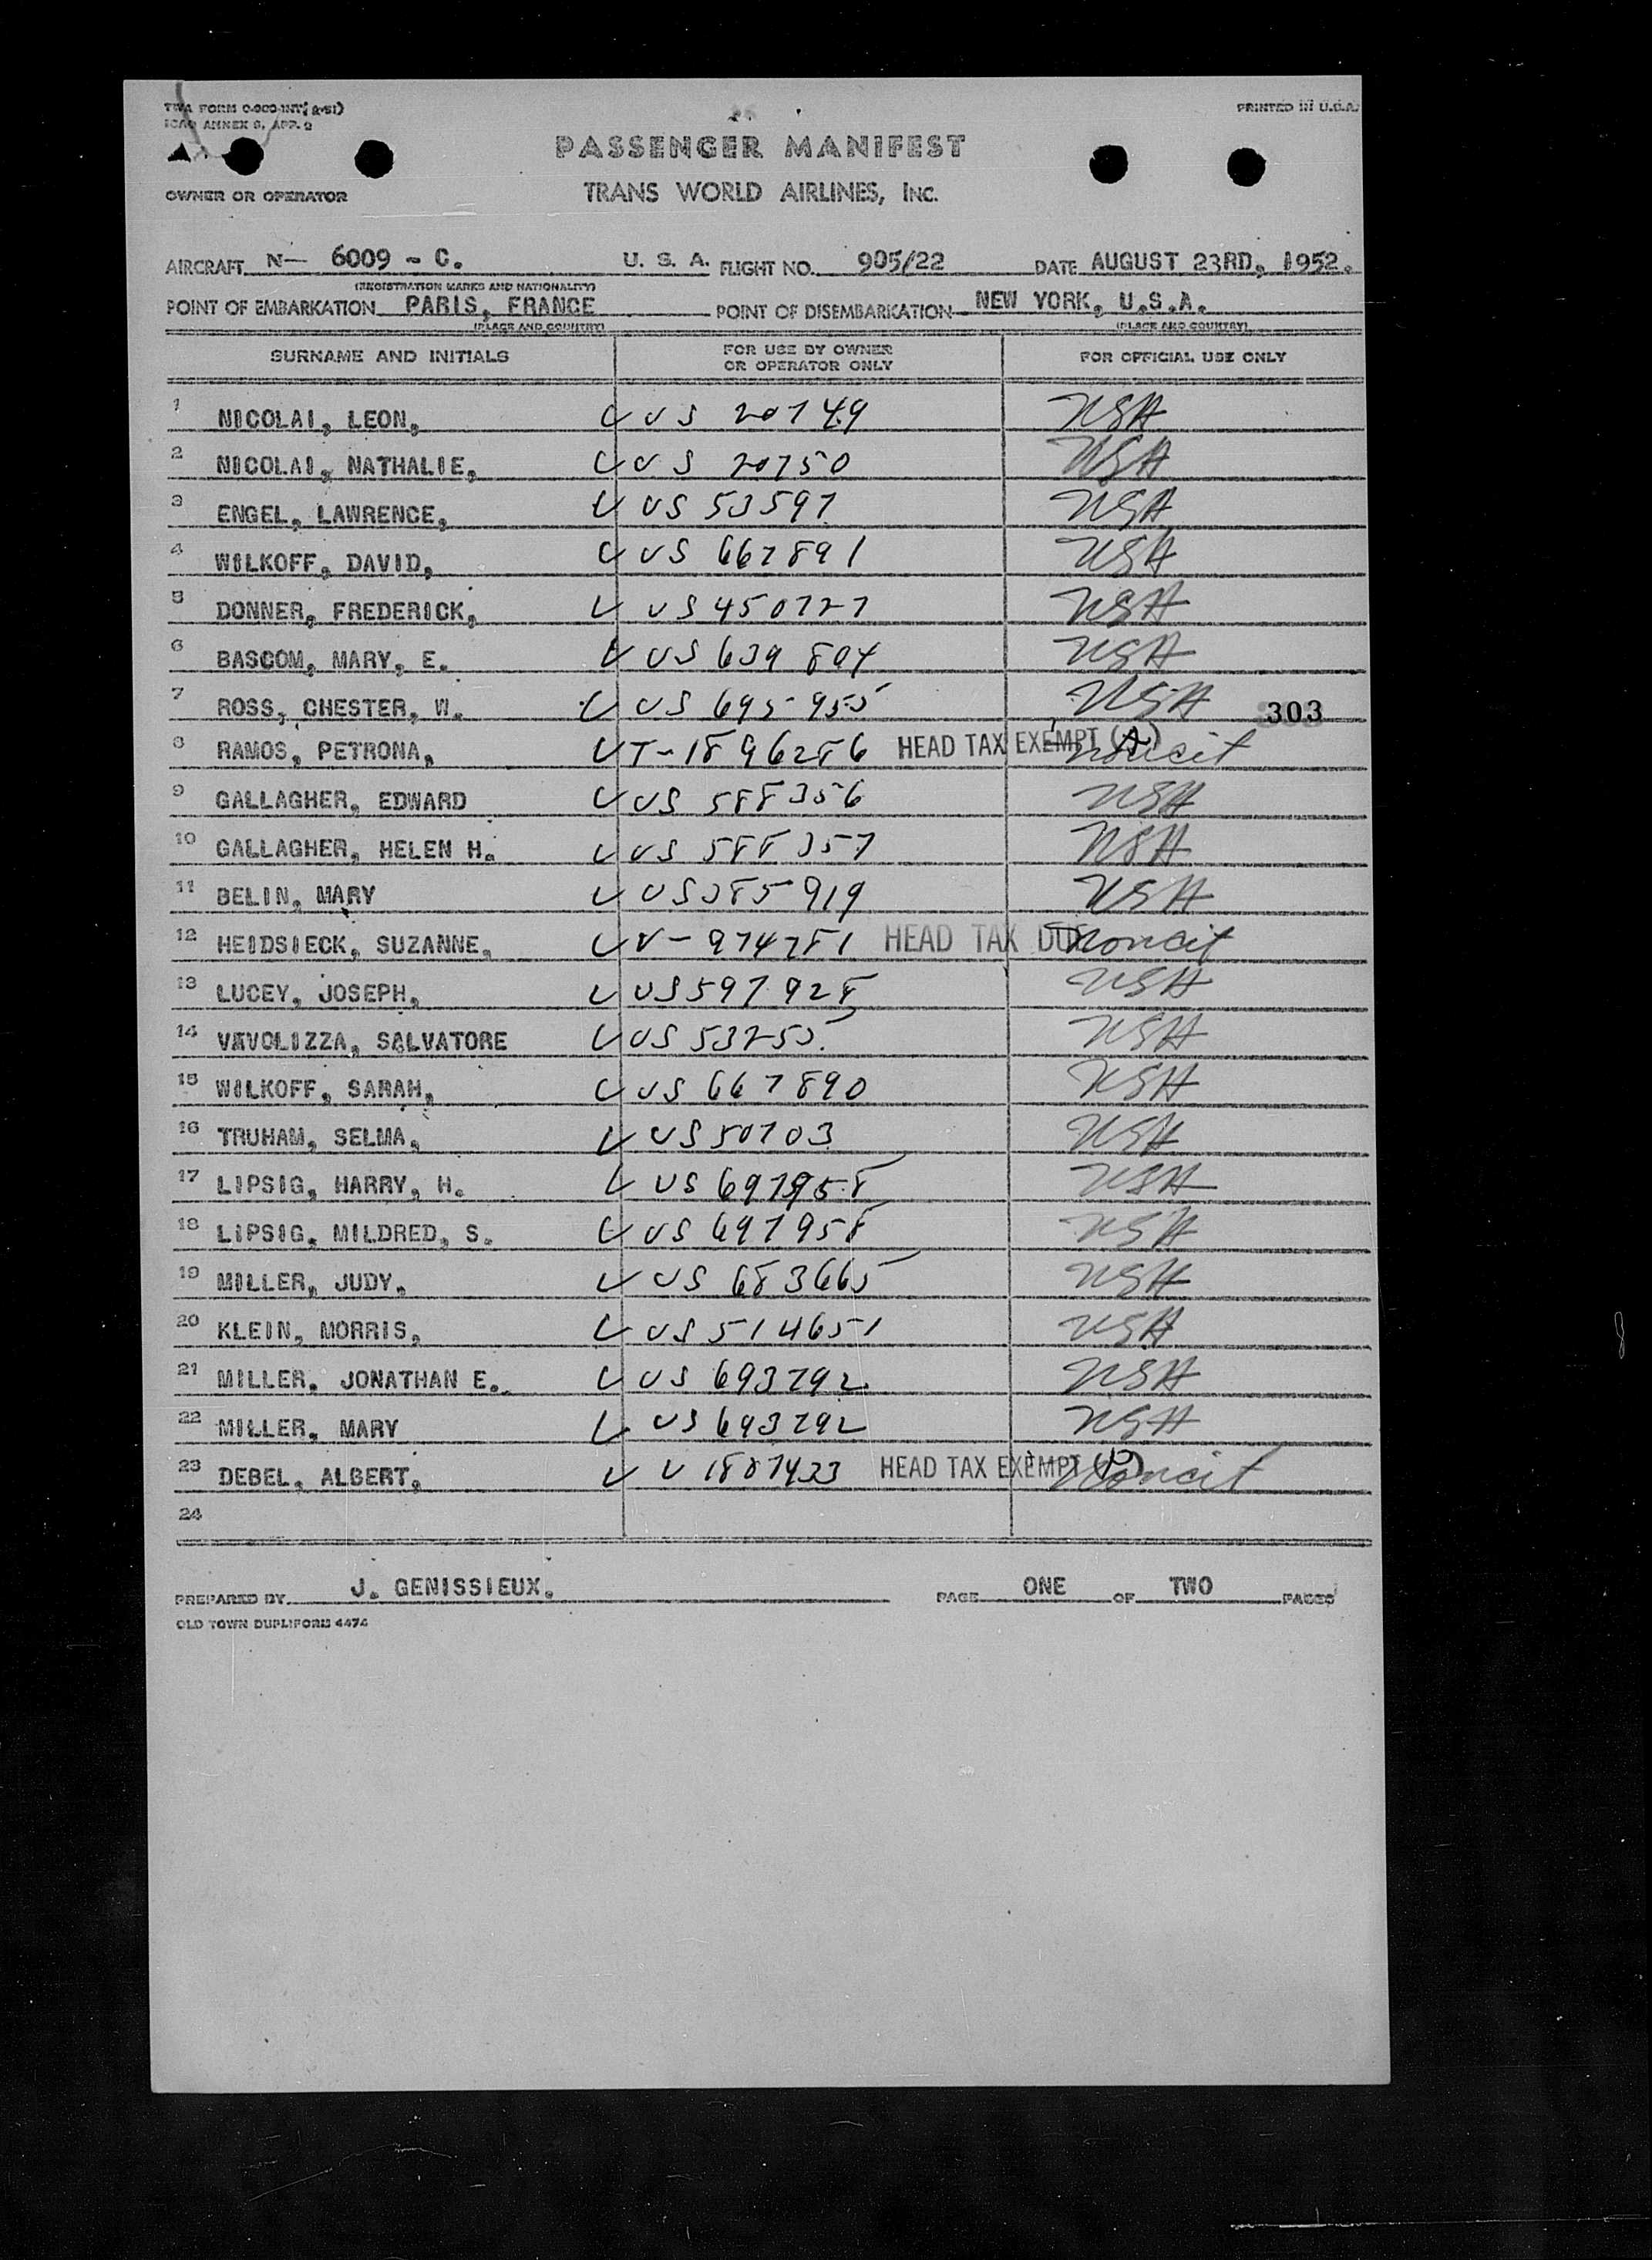 TWA FORM 0-900-INT. (2-51)
ICAO ANNEX 9, APP. 2
PRINTED IN U.S.A.
PASSENGER MANIFEST
OWNER OR OPERATOR
TRANS WORLD AIRLINES, INC.
AIRCRAFT N— 6009 - C. U. S. A. FLIGHT NO. 905/22 DATE AUGUST 23RD, 1952.
(REGISTRATION MARKS AND NATIONALITY)
POINT OF EMBARKATION PARIS, FRANCE POINT OF DISEMBARKATION NEW YORK, U.S.A.
(PLACE AND COUNTRY) (PLACE AND COUNTRY)
SURNAME AND INITIALS FOR USE BY OWNER OR OPERATOR ONLY FOR OFFICIAL USE ONLY
1 NICOLAI, LEON, US 20749 USA
2 NICOLAI, NATHALIE, US 20750 USA
3 ENGEL, LAWRENCE, US 53597 USA
4 WILKOFF, DAVID, US 667891 USA
5 DONNER, FREDERICK, US 450727 USA
6 BASCOM, MARY, E. US 639 804 USA
7 ROSS, CHESTER, W. US 695955 USA 303
8 RAMOS, PETRONA, T-1896286 HEAD TAX EXEMPT noncit
9 GALLAGHER, EDWARD US 588356 USA
10 GALLAGHER, HELEN H. US 588357 USA
11 BELIN, MARY US 385919 USA
12 HEIDSIECK, SUZANNE, V-974781 HEAD TAX DUE noncit
13 LUCEY, JOSEPH, US 597928 USA
14 VAVOLIZZA, SALVATORE US 53255 USA
15 WILKOFF, SARAH, US 667890 USA
16 TRUHAM, SELMA, US 50703 USA
17 LIPSIG, HARRY, H. US 697958 USA
18 LIPSIG, MILDRED, S. US 697958 USA
19 MILLER, JUDY, US 683665 USA
20 KLEIN, MORRIS, US 514651 USA
21 MILLER, JONATHAN E. US 693792 USA
22 MILLER, MARY US 693792 USA
23 DEBEL, ALBERT, V 1887433 HEAD TAX EXEMPT noncit
24
PREPARED BY J. GENISSIEUX. PAGE ONE OF TWO PAGES
OLD TOWN DUPLIFORM 4474